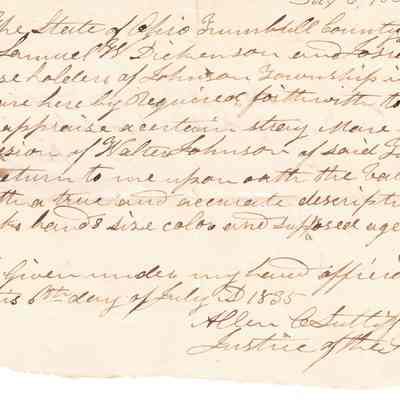 The State of Ohio Trumbull County
Samuel W Dickenson and
se holders of Johnson Township
are hereby Required forthwith to
appraise a certain stray Mare
sion of Walter Johnson of said
eturn to me upon oath the
a true and accurate descripti
ks hands size color and supposed age
Given under my hand
is 6th day of July AD 1835
Allen C Sutliff
Justice of the